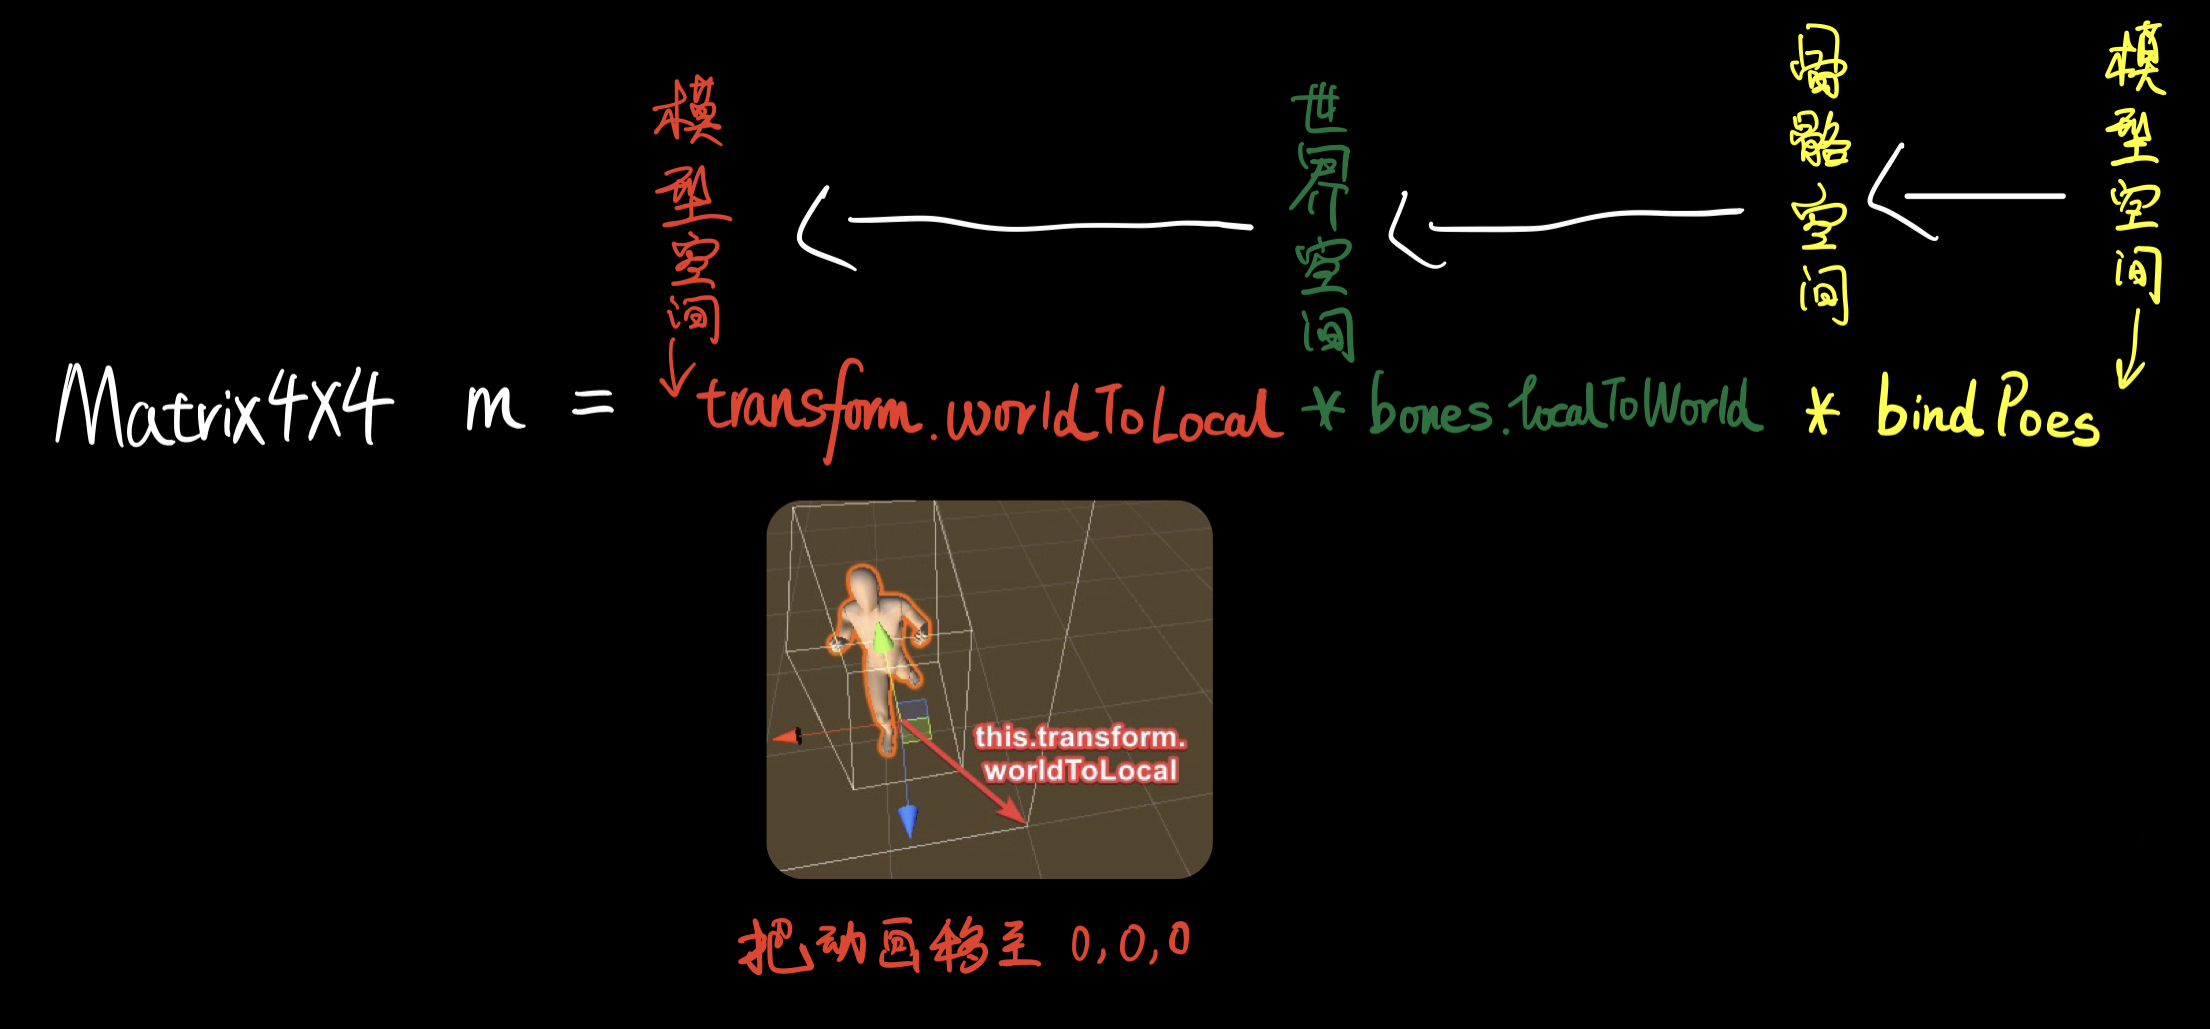 模型空间
世界空间
骨骼空间
模型空间
Matrix4X4 m = transform.worldToLocal * bones.localToWorld * bindPoes
this.transform.
worldToLocal
把动画移至 0,0,0